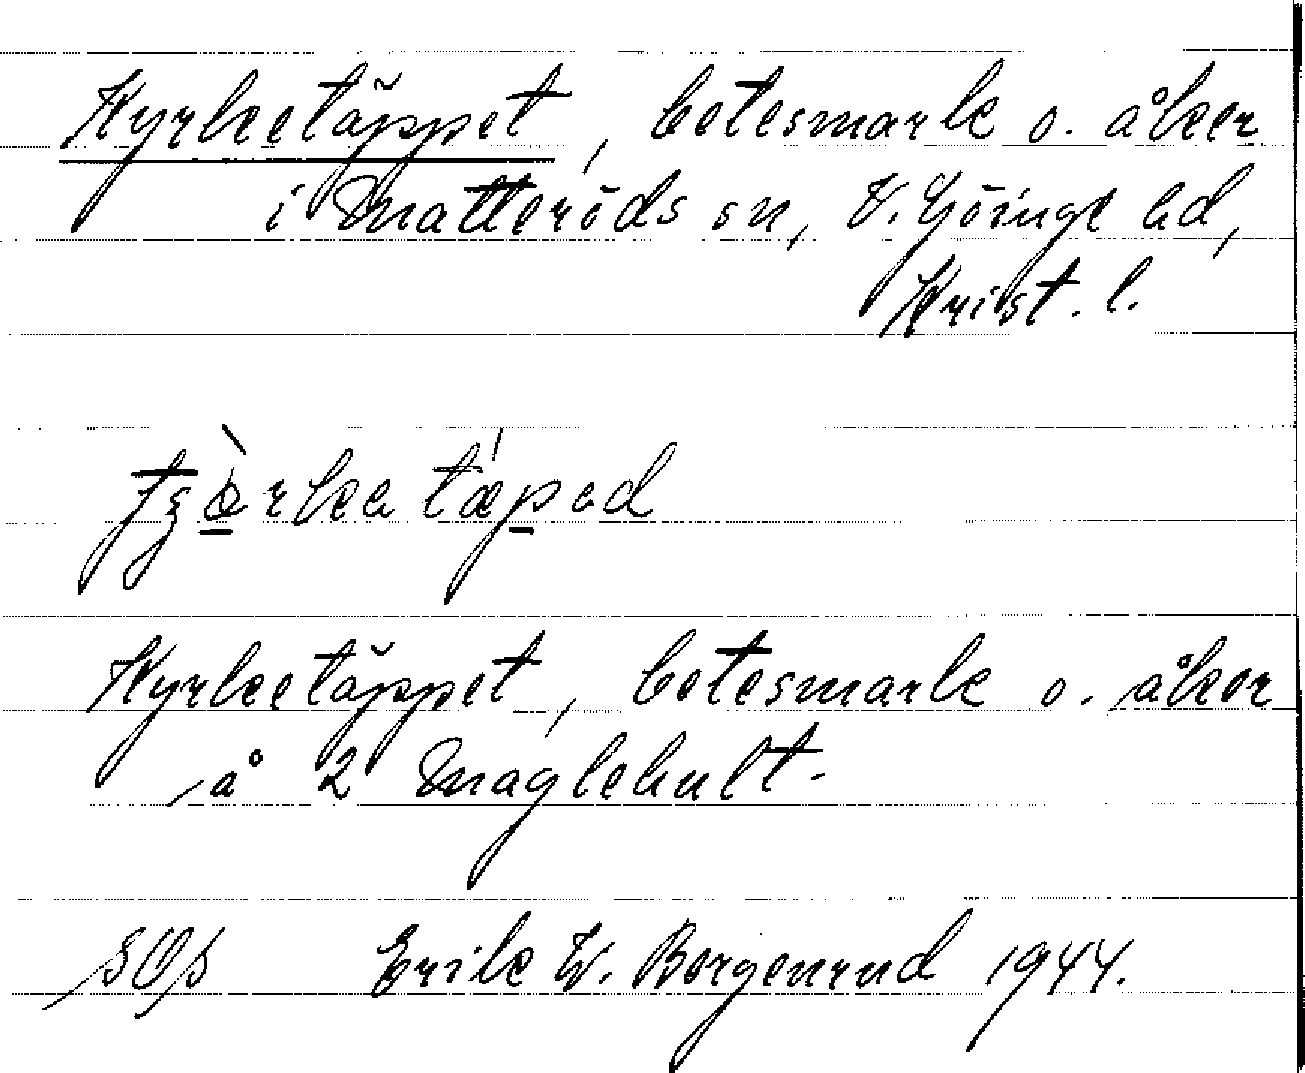 Kyrketäppet, betesmark o. åker
i Matteröds sn, V. Göinge hd,
Krist. l.
Kyrketäppet, betesmark o. åker
å 2 Maglehult.
Erik W. Borgenrud 1944.